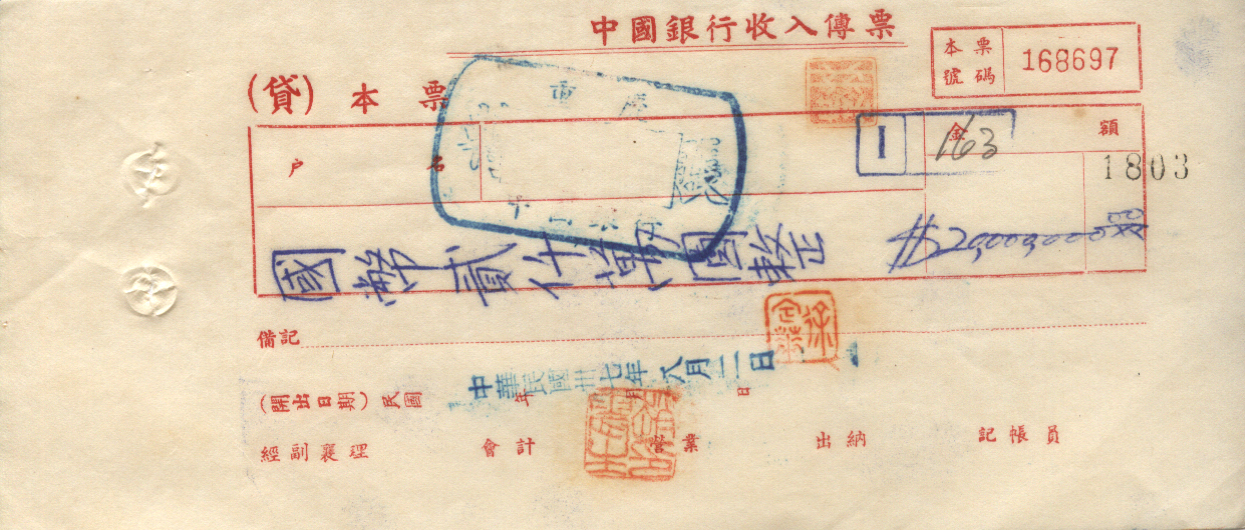 中國銀行收入傳票
本票號碼 168697
(貸) 本票
重慶
戶名
I
163
金額
1803
國幣貳仟萬圓整 $20,000,000.00
備記
中華民國卅七年八月二日
(開出日期) 民國 年 月 日
經副襄理 會計 營業 出納 記帳員